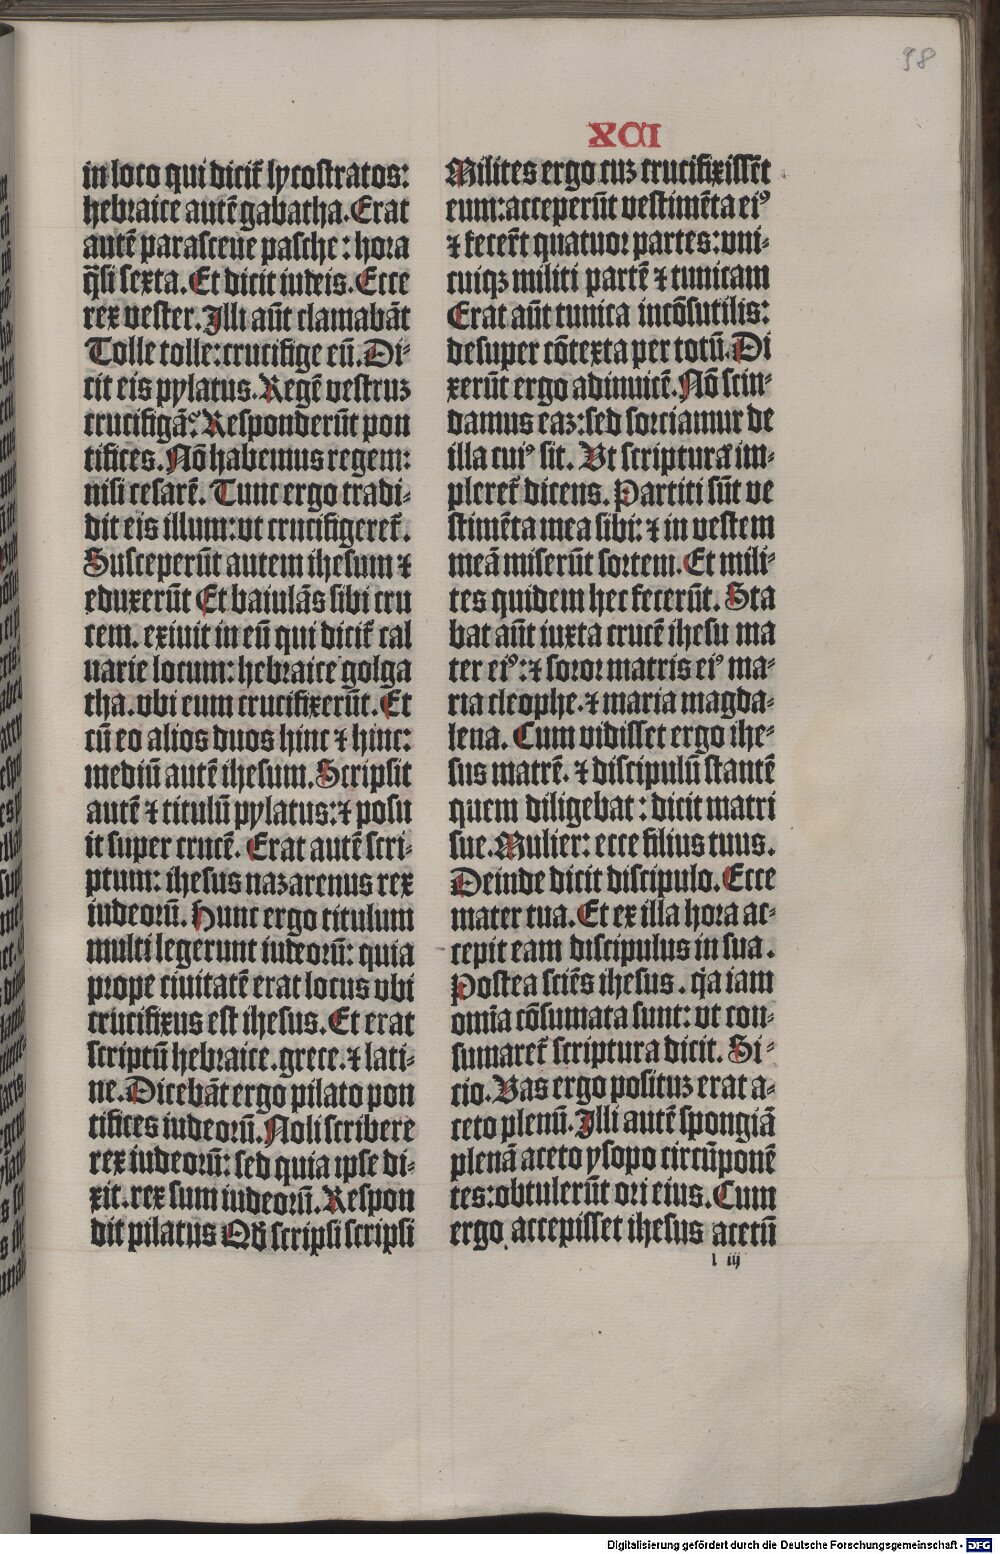 98
XCI
in loco qui dicit᷑ lycostratos:
hebraice autē gabatha. Erat
autē parasceue pasche: hora
q̄si sexta. Et dicit iudeis. Ecce
rex vester. Illi aūt clamabāt
Tolle tolle: crucifige eū. Di⸗
cit eis pylatus. Regē vestruz
crucifigā? Responderūt pon
tifices. Nō habemus regem:
nisi cesarē. Tunc ergo tradi⸗
dit eis illum: vt crucifigeret᷑.
Susceperūt autem ihesum ⁊
eduxerūt Et baiulās sibi cru
cem. exiuit in eū qui dicit᷑ cal
uarie locum: hebraice golga
tha. vbi eum crucifixerūt. Et
cū eo alios duos hinc ⁊ hinc:
mediū autē ihesum. Scripsit
autē ⁊ titulū pylatus: ⁊ posu
it super crucē. Erat autē scri⸗
ptum: ihesus nazarenus rex
iudeoꝝ. Hunc ergo titulum
multi legerunt iudeoꝝ: quia
prope ciuitatē erat locus vbi
crucifixus est ihesus. Et erat
scriptū hebraice. grece. ⁊ lati⸗
ne. Dicebāt ergo pilato pon
tifices iudeoꝝ. Noli scribere
rex iudeoꝝ: sed quia ipse di⸗
xit. rex sum iudeoꝝ. Respon
dit pilatus Qd̄ scripsi scripsi
Milites ergo cuz crucifixissēt
eum: acceperūt vestimēta eiꝰ
⁊ fecer̄t quatuor partes: vni⸗
cuiqꝫ militi partē ⁊ tunicam
Erat aūt tunica incōsutilis:
desuper cōtexta per totū. Di
xerūt ergo adinuicē. Nō scin⸗
damus eaz: sed sorciamur de
illa cuiꝰ sit. Vt scriptura im⸗
pleret᷑ dicens. Partiti sūt ve
stimēta mea sibi: ⁊ in vestem
meā miserūt sortem. Et mili⸗
tes quidem hec fecerūt. Sta
bat aūt iuxta crucē ihesu ma
ter eiꝰ: ⁊ soror matris eiꝰ ma⸗
ria cleophe. ⁊ maria magda⸗
lena. Cum vidisset ergo ihe⸗
sus matrē. ⁊ discipulū stantē
quem diligebat: dicit matri
sue. Mulier: ecce filius tuus.
Deinde dicit discipulo. Ecce
mater tua. Et ex illa hora ac⸗
cepit eam discipulus in sua.
Postea sciēs ihesus. qȧ iam
om̄ia cōsumata sunt: vt con⸗
sumaret᷑ scriptura dicit. Si⸗
cio. Vas ergo posituz erat a⸗
ceto plenū. Illi autē spongiā
plenā aceto ysopo circūponē
tes: obtulerūt ori eius. Cum
ergo accepisset ihesus acetū
l iij
Digitalisierung gefördert durch die Deutsche Forschungsgemeinschaft - DFG